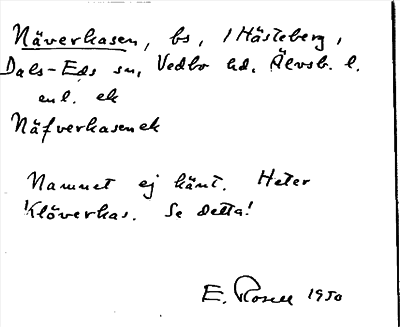 Näverkasen, bs, /Hästeberg,
Dals-Eds sn, Vedbo hd. Älvsb. l.
enl. ek
Näfverkasen ek
Namnet ej känt. Heter
Klöverkas. Se detta!
E. Rosell 1950